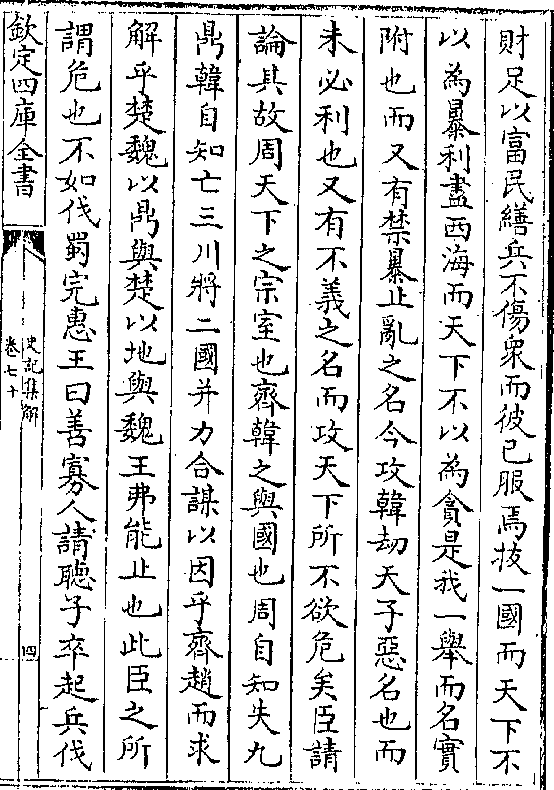 財足以富民繕兵不傷衆而彼已服焉拔一國而天下不
以為暴利盡西海而天下不以為貪是我一舉而名實
附也而又有禁暴止亂之名今攻韓劫天子惡名也而
未必利也又有不義之名而攻天下所不欲危矣臣請
論其故周天下之宗室也齊韓之與國也周自知失九
鼎韓自知亡三川將二國并力合謀以因乎齊趙而求
解乎楚魏以鼎與楚以地與魏王弗能止也此臣之所
謂危也不如伐蜀完惠王曰善寡人請聽子卒起兵伐
欽定四庫全書
史記集解
卷七十
四